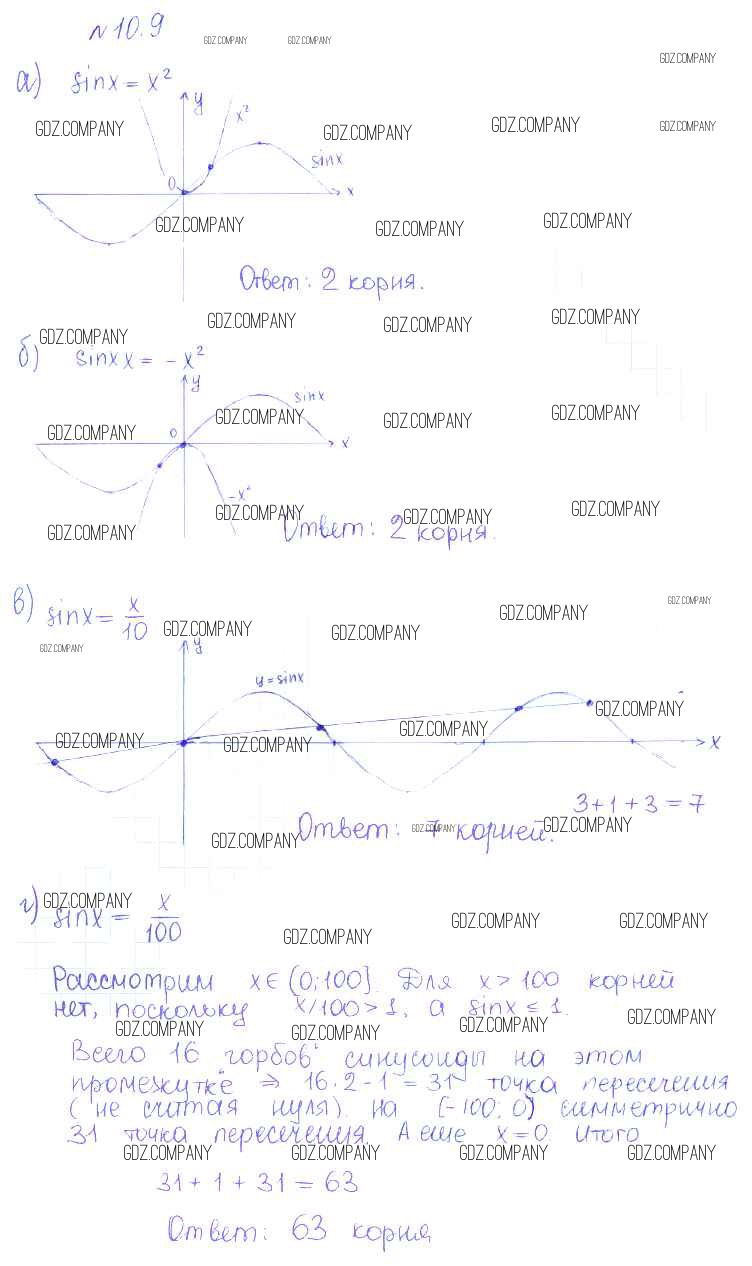 №10.9
GDZ.COMPANY GDZ.COMPANY
GDZ.COMPANY
а) sinx = x²
y
x²
GDZ.COMPANY GDZ.COMPANY GDZ.COMPANY GDZ.COMPANY
sinx
0
x
GDZ.COMPANY GDZ.COMPANY GDZ.COMPANY
Ответ: 2 корня.
GDZ.COMPANY GDZ.COMPANY GDZ.COMPANY GDZ.COMPANY
б) sinx x = - x²
y
sinx
GDZ.COMPANY GDZ.COMPANY GDZ.COMPANY GDZ.COMPANY
0
x
-x²
GDZ.COMPANY GDZ.COMPANY GDZ.COMPANY GDZ.COMPANY
Ответ: 2 корня.
в) sinx = x/10
GDZ.COMPANY GDZ.COMPANY GDZ.COMPANY GDZ.COMPANY
GDZ.COMPANY
y
y=sinx
GDZ.COMPANY GDZ.COMPANY GDZ.COMPANY GDZ.COMPANY
x
3+1+3=7
Ответ: 7 корней.
GDZ.COMPANY GDZ.COMPANY GDZ.COMPANY
GDZ.COMPANY
г) sinx = x/100
GDZ.COMPANY GDZ.COMPANY GDZ.COMPANY
Рассмотрим x∈(0;100]. Для x>100 корней
нет, поскольку x/100>1, а sinx≤1.
GDZ.COMPANY GDZ.COMPANY GDZ.COMPANY GDZ.COMPANY
Всего 16 "горбов" синусоиды на этом
промежутке ⇒ 16·2-1=31 точка пересечения
(не считая нуля). На [-100;0) симметрично
31 точка пересечения. А еще x=0. Итого
GDZ.COMPANY GDZ.COMPANY GDZ.COMPANY GDZ.COMPANY
31+1+31=63
Ответ: 63 корня